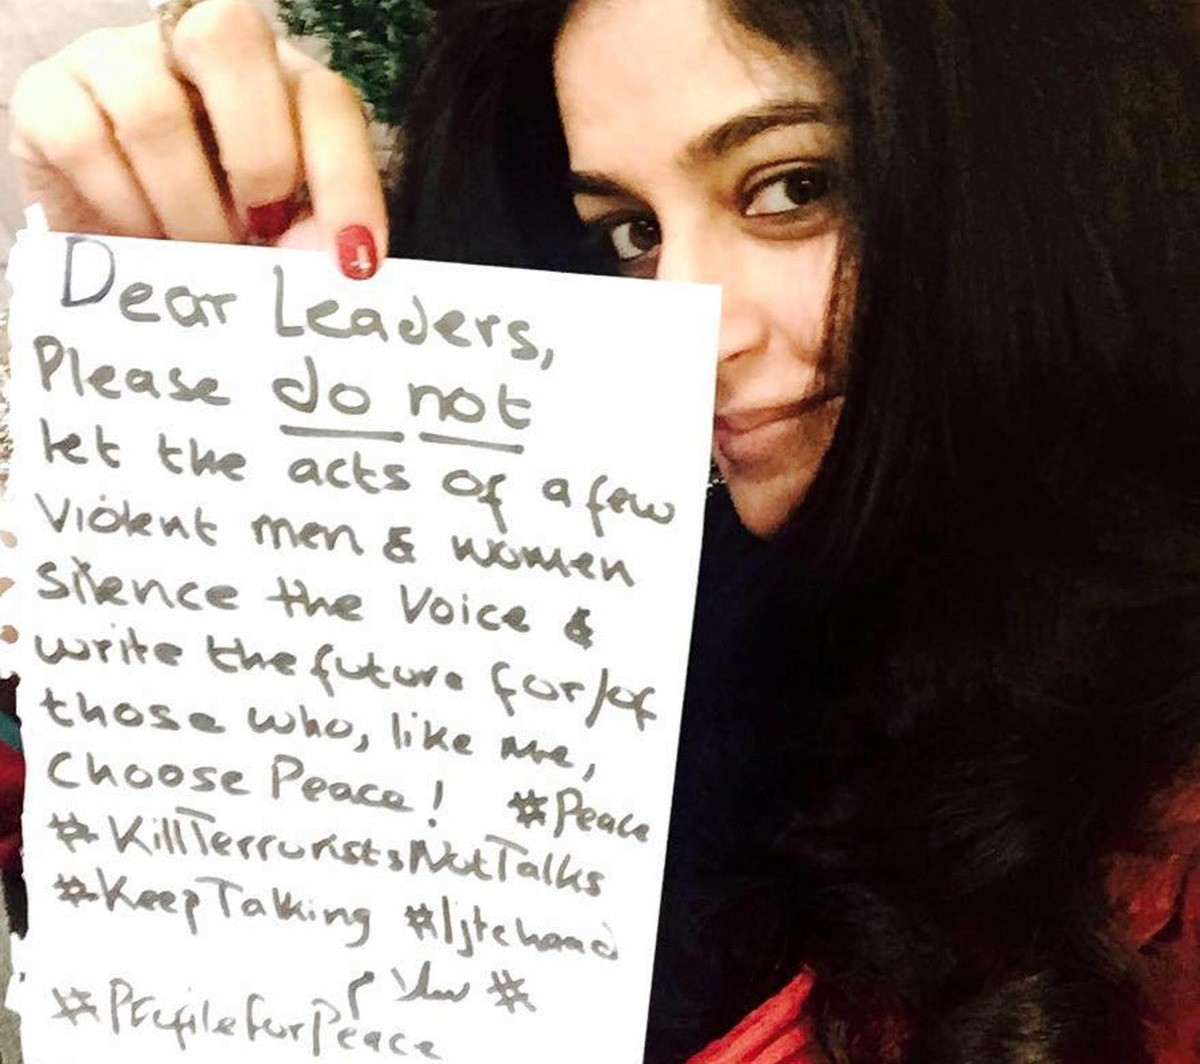 Dear Leaders,
Please do not
let the acts of a few
Violent men & women
silence the Voice &
write the future for/of
those who, like me,
Choose Peace! #Peace
#KillTerroristsNotTalks
#KeepTalking #Ijtehaad
#ProfileforPeace